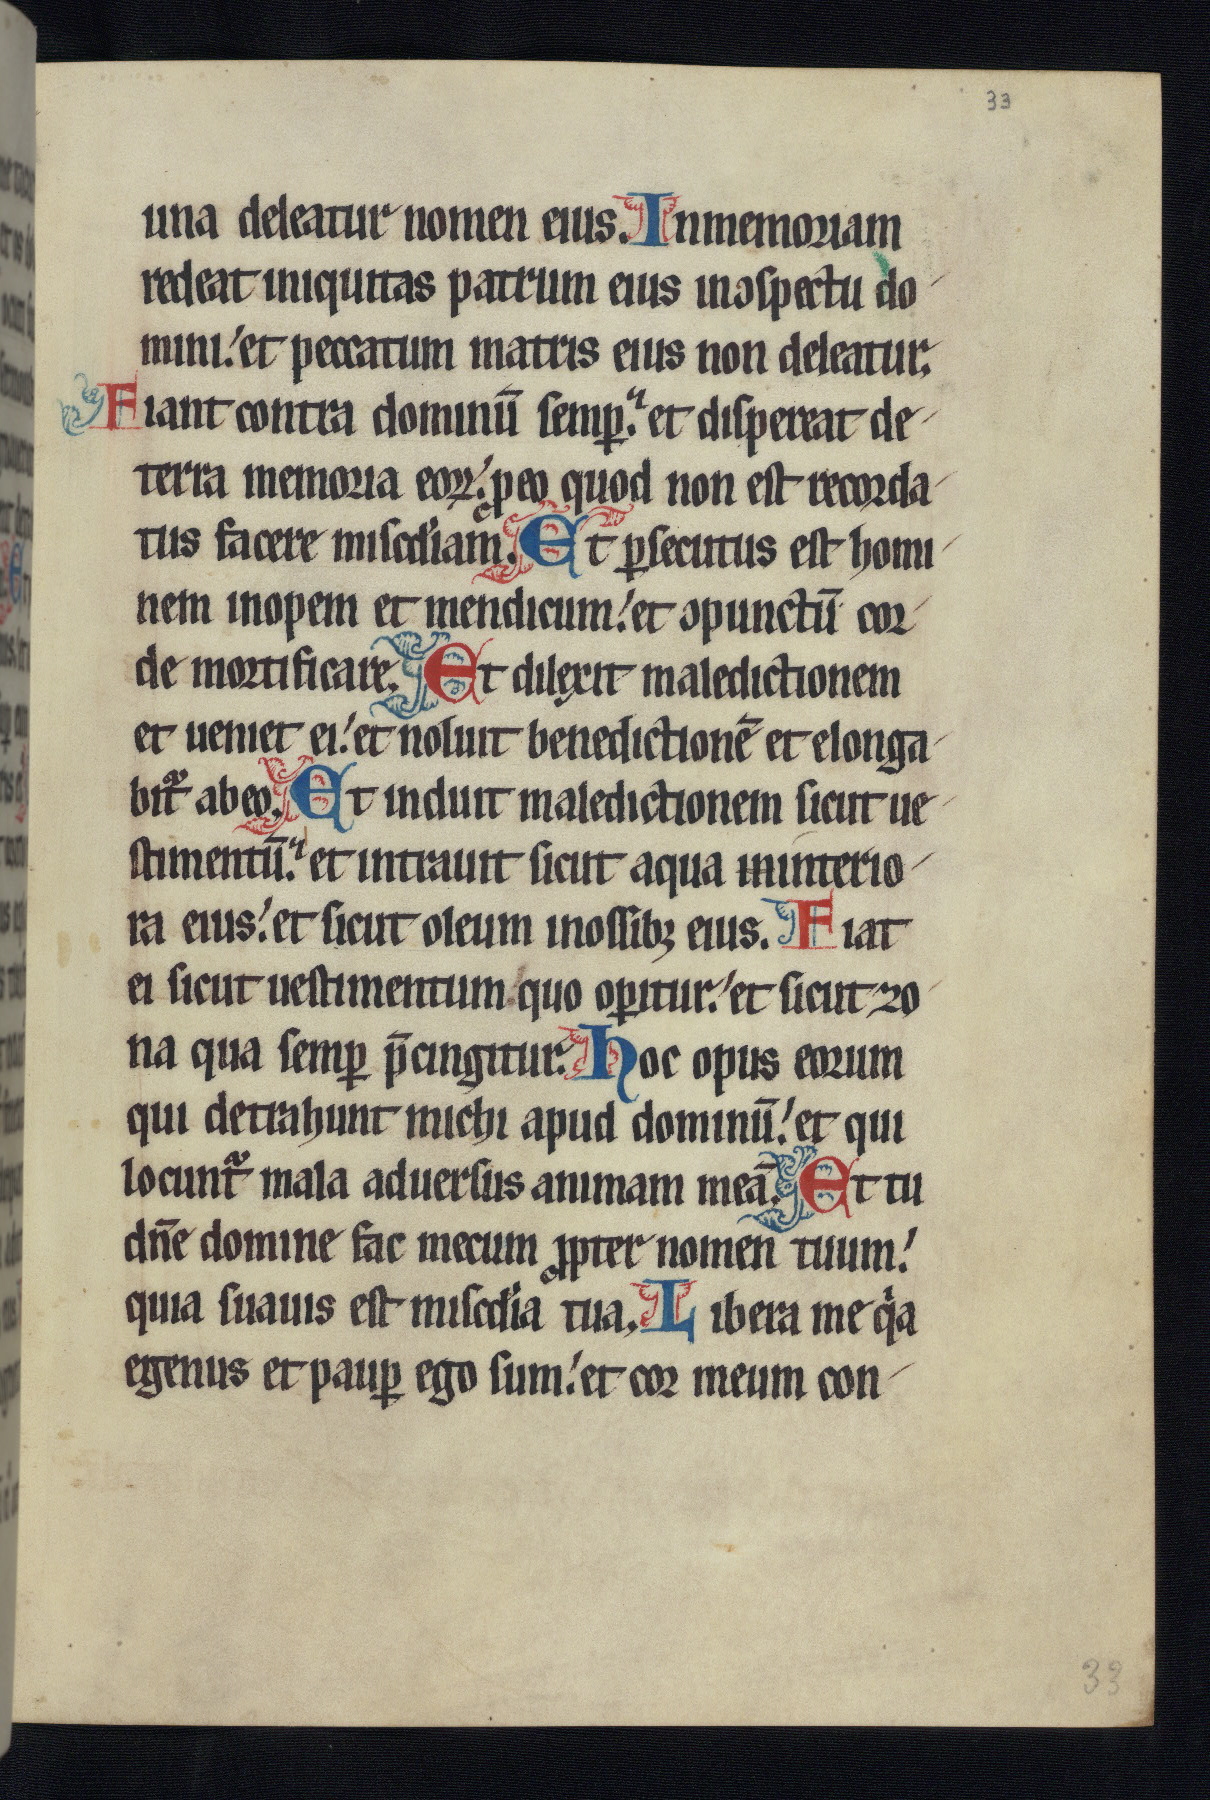 33
una deleatur nomen eius. Inmemoriam
redeat iniquitas patrum eius inↄspectu do-
mini: et peccatum matris eius non deleatur,
Fiant contra dominū semꝑ: et dispereat de-
terra memoria eoꝝ: ꝓeo quod non est recorda-
tus facere miscd'iam. Et ꝑsecutus est homi-
nem inopem et mendicum: et ↄpunctū cor-
de mortificare. Et dilexit maledictionem
et ueniet ei: et noluit benedictionē et elonga-
bit᷑ abeo. Et induit maledictionem sicut ue-
stimentū: et intrauit sicut aqua ininterio-
ra eius: et sicut oleum inossibꝫ eius. Fiat
ei sicut uestimentum quo oꝑitur: et sicut zo-
na qua semꝑ p̄cingitur. Hoc opus eorum
qui detrahunt michi apud dominū: et qui
locunt᷑ mala aduersus animam meā. Et tu
dn̄e domine fac mecum ꝓpter nomen tuum:
quia suauis est miscd'ia tua, Libera me qⁱa
egenus et pauꝑ ego sum: et cor meum con-
33